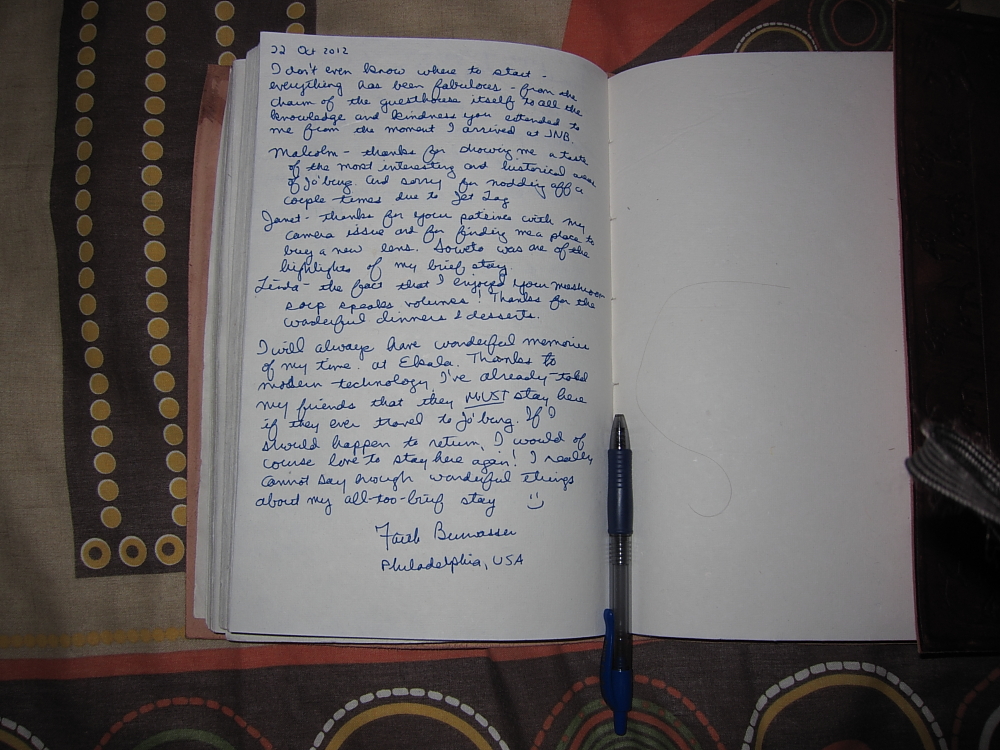 22 Oct 2012
I don't even know where to start -
everything has been fabulous - from the
charm of the guesthouse itself to all the
knowledge and kindness you extended to
me from the moment I arrived at JNB.
Malcolm - thanks for showing me a taste
of the most interesting and historical areas
of Jo'burg. And sorry for nodding off a
couple times due to Jet Lag
Janet - thanks for your patience with my
camera issue and for finding me a place to
buy a new lens. Soweto was one of the
highlights of my brief stay.
Linda - the fact that I enjoyed your mushroom
soup speaks volumes! Thanks for the
wonderful dinners & desserts.
I will always have wonderful memories
of my time at Ekala. Thanks to
modern technology, I've already told
my friends that they MUST stay here
if they ever travel to Jo'burg. If I
should happen to return, I would of
course love to stay here again! I really
cannot say enough wonderful things
about my all-too-brief stay :)
Faith
Philadelphia, USA